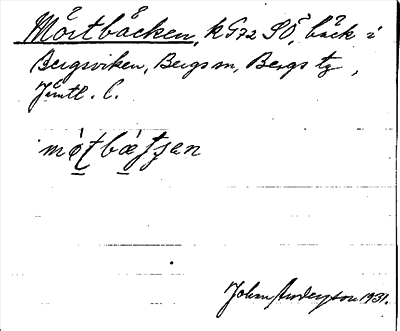 Mörtbäcken, k G72 SÖ, bäck i
Bergsviken, Bergs sn, Bergs tg,
Jämtl. l.
Johan Anderson 1931.